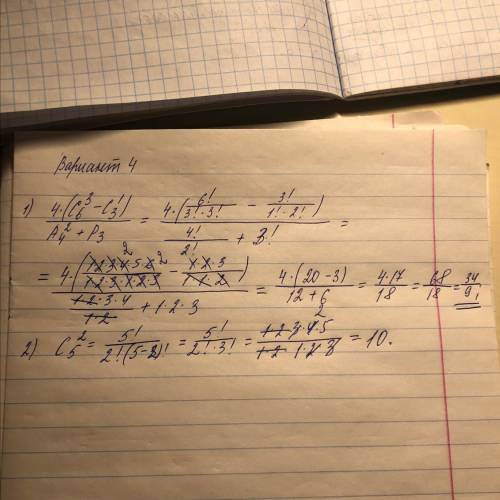 Вариант 4
1) \frac{4·(C_6^3 - C_3^1)}{A_4^2 + P_3} = \frac{4·(\frac{6!}{3!·3!} - \frac{3!}{1!·2!})}{\frac{4!}{2!} + 3!} =
= \frac{4·(\frac{1·2·3·4·5·6}{1·2·3·1·2·3} - \frac{1·2·3}{1·1·2})}{\frac{1·2·3·4}{1·2} + 1·2·3} = \frac{4·(20-3)}{12+6} = \frac{4·17}{18} = \frac{68}{18} = \frac{34}{9};
2) C_5^2 = \frac{5!}{2!(5-2)!} = \frac{5!}{2!·3!} = \frac{1·2·3·4·5}{1·2·1·2·3} = 10.